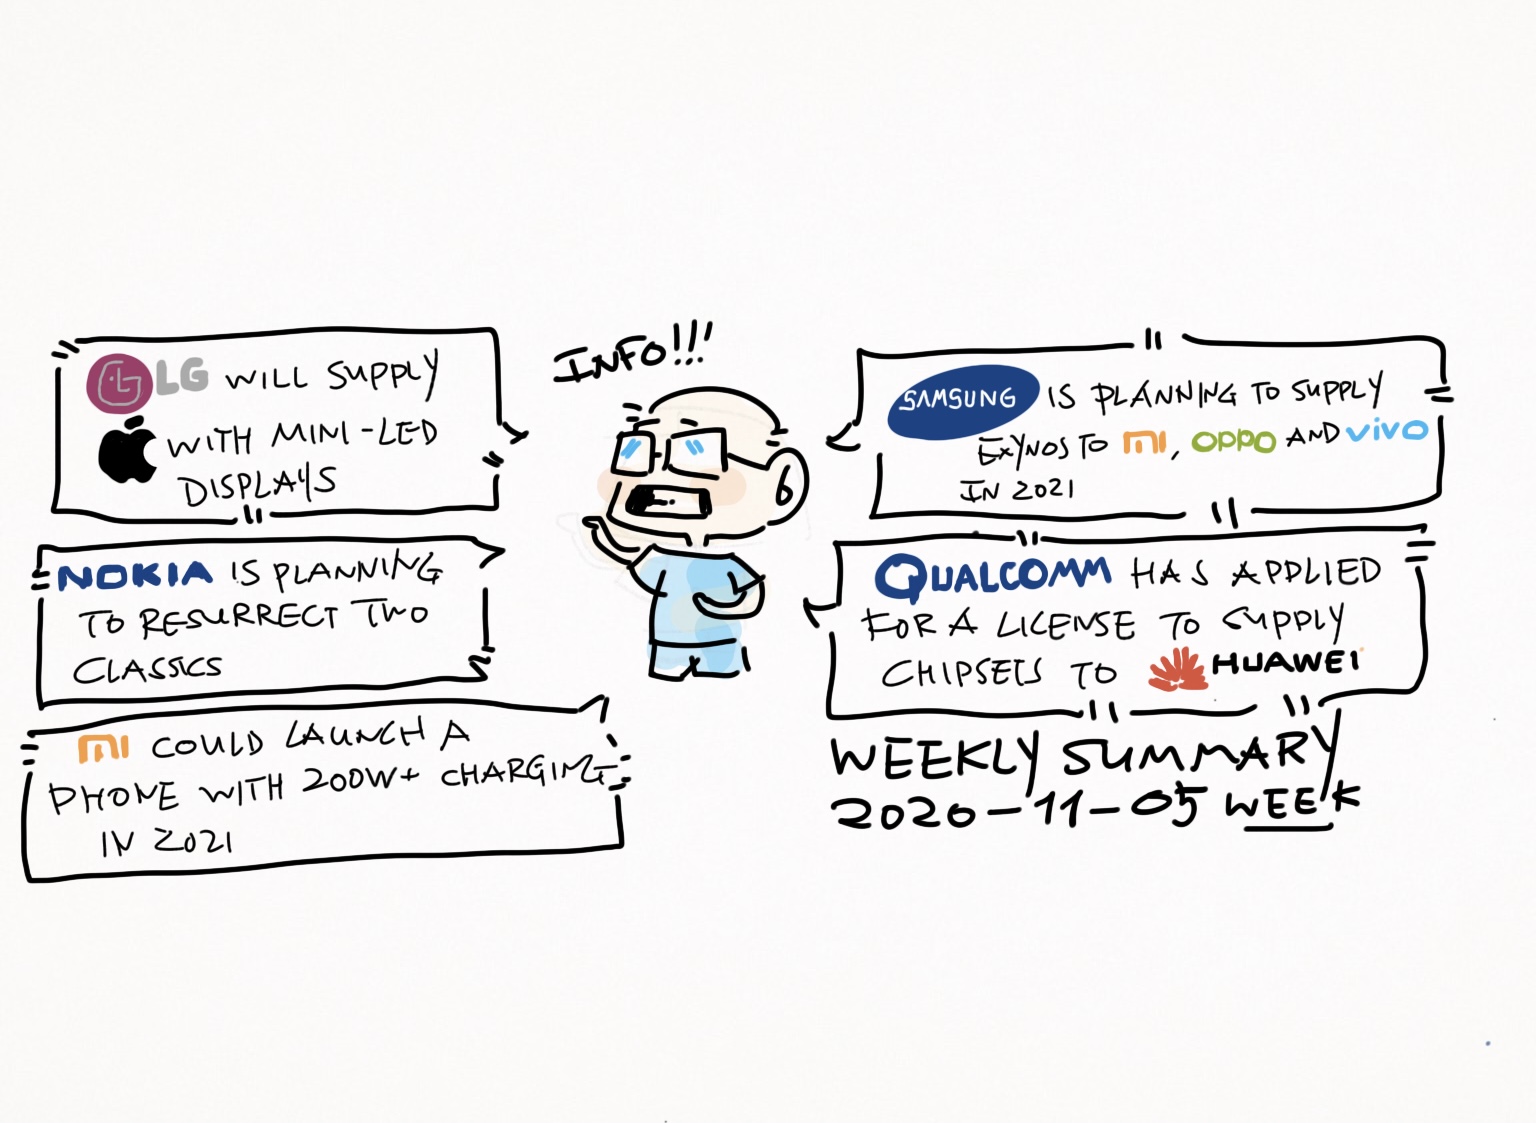 LG WILL SUPPLY
WITH MINI-LED
DISPLAYS
NOKIA IS PLANNING
TO RESURRECT TWO
CLASSICS
MI COULD LAUNCH A
PHONE WITH 200W+ CHARGING
IN 2021
INFO!!!
SAMSUNG IS PLANNING TO SUPPLY
EXYNOS TO MI, OPPO AND VIVO
IN 2021
QUALCOMM HAS APPLIED
FOR A LICENSE TO SUPPLY
CHIPSETS TO HUAWEI
WEEKLY SUMMARY
2020-11-05 WEEK